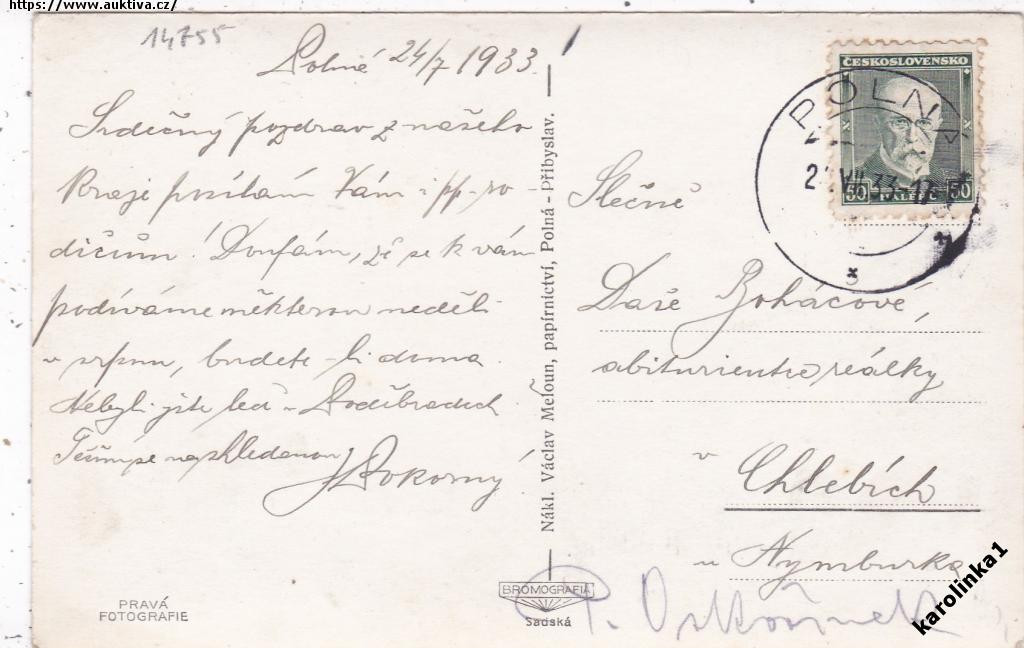 https://www.auktiva.cz/
14755
Polná 24/7 1933.
Srdečný pozdrav z našeho
kraje posílám Vám i pp. ro-
dičům! Doufám, že se k vám
podíváme některou neděli
v srpnu, budete-li doma.
Nebyli jste teď v Poděbradech
Těším se na shledanou
JPokorný!
PRAVÁ
FOTOGRAFIE
Nákl. Václav Meloun, papírnictví, Polná - Přibyslav.
BROMOGRAFIA
Sadská
ČESKOSLOVENSKO
50 HALÉŘŮ 50
POLNÁ
VII.33-17
Slečně
Daše Boháčové,
abiturientce reálky
v
Chlebích
u Nymburka
P. Oskořínek
karolinka1